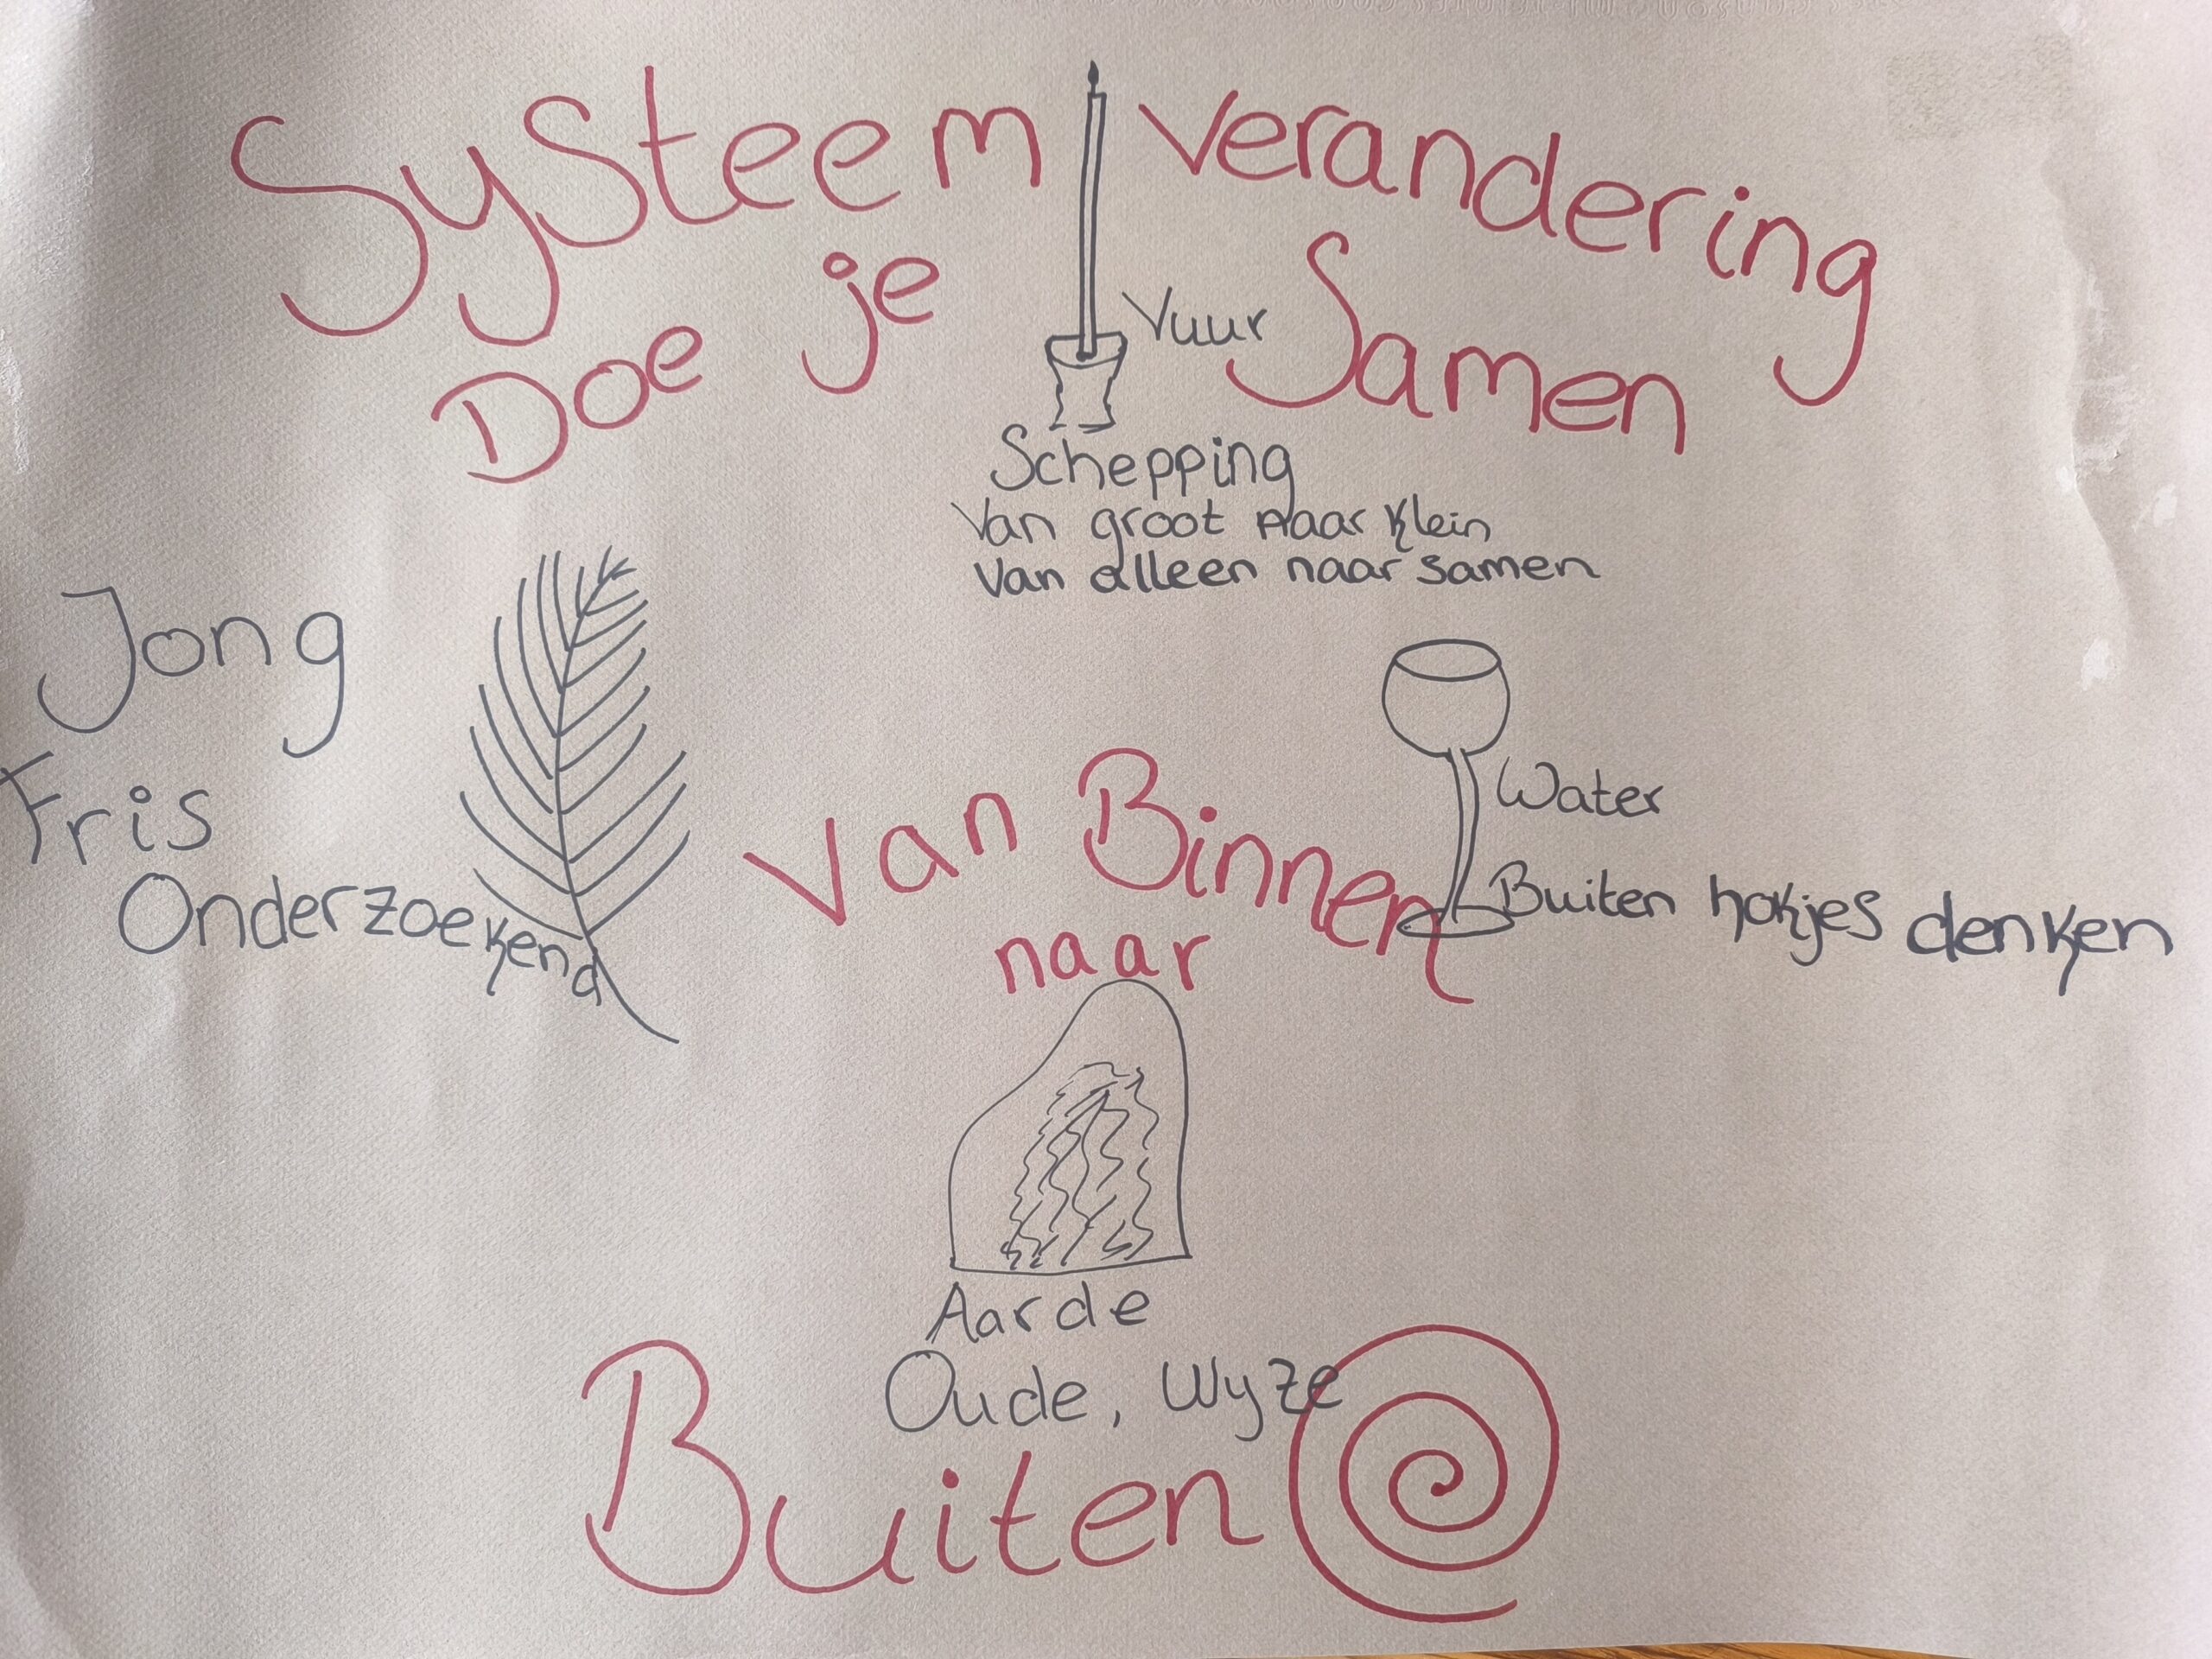 Systeem verandering
Doe je Samen
Vuur
Schepping
Van groot naar klein
Van alleen naar samen
Jong
Fris
Onderzoekend
Water
Buiten hokjes denken
Van Binnen
naar
Aarde
Oude, Wyze
Buiten